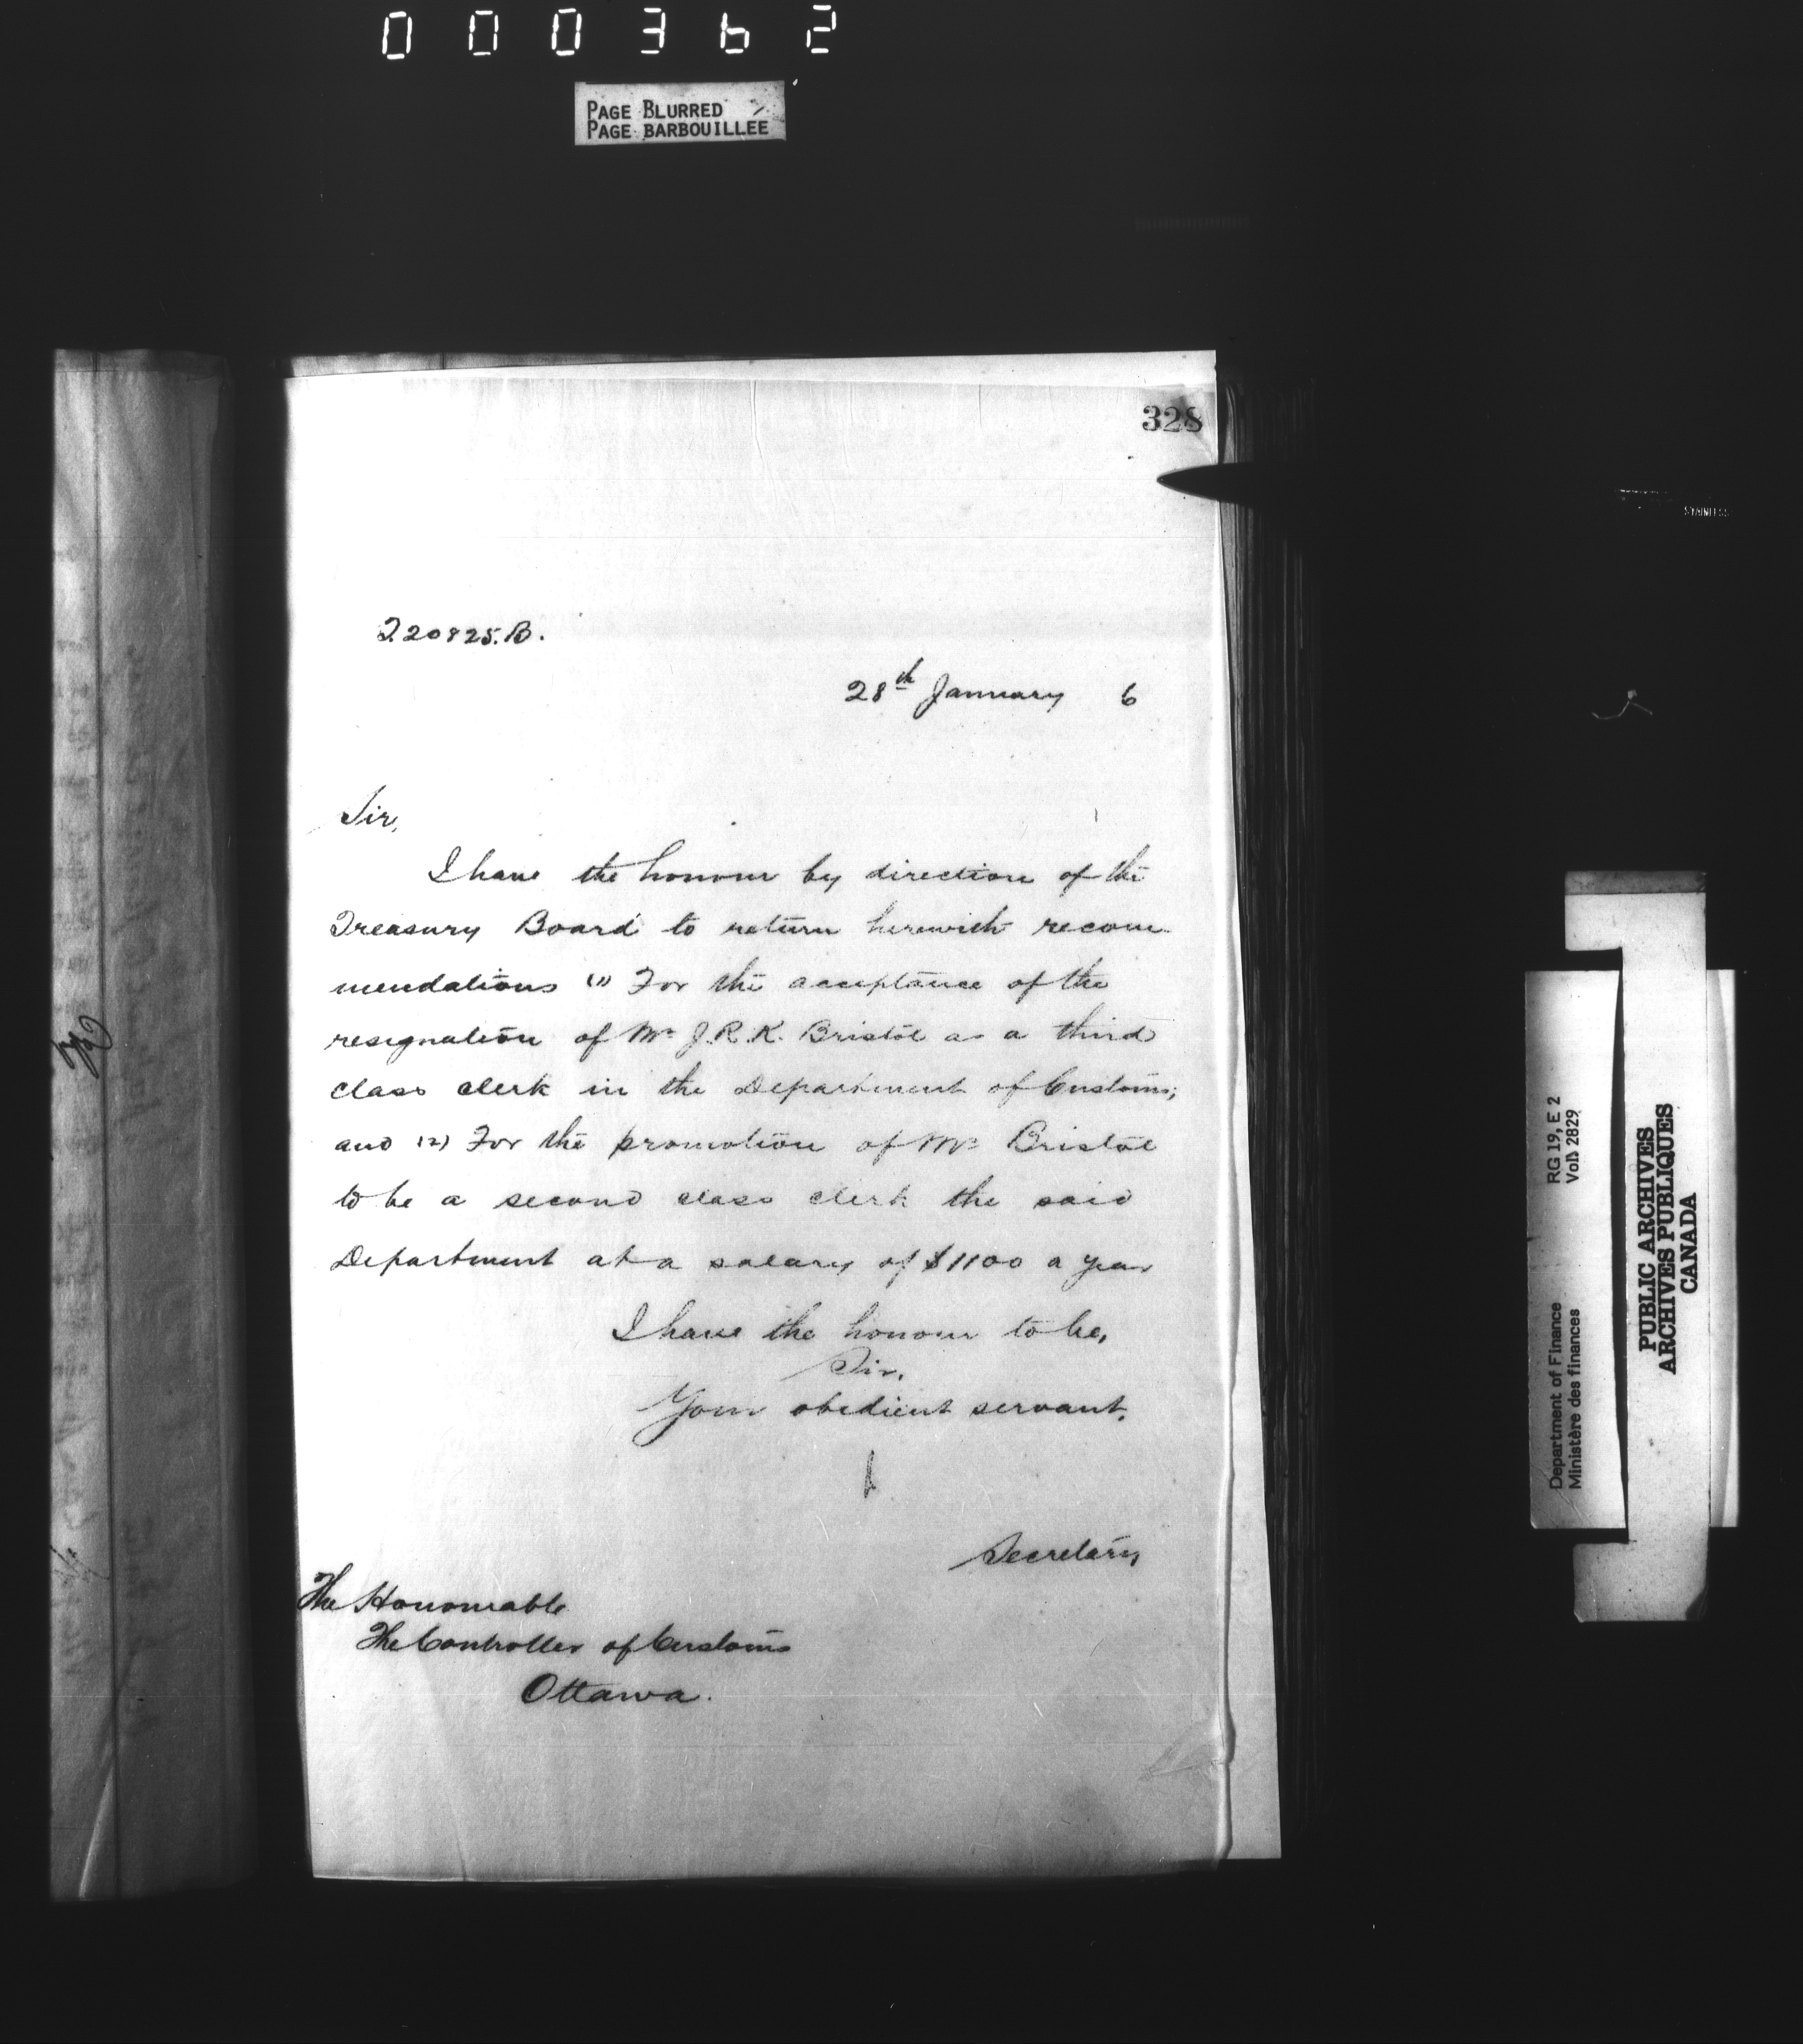 000362
PAGE BLURRED
PAGE BARBOUILLEE
328
28th January 6
Sir,
I have the honour by direction of the
Treasury Board to return herewith recom
mendations (1) For the acceptance of the
resignation of Mr J.R.K. Bristol as a third
class clerk in the Department of Customs;
and (2) For the promotion of Mr Bristol
to be a second class clerk the said
Department at a salary of $1100 a year
I have the honour to be,
Sir,
Your obedient servant,
Secretary
The Honourable
The Controller of Customs
Ottawa.
STAINLESS
RG 19, E 2
Vol. 2829
Department of Finance
Ministère des finances
PUBLIC ARCHIVES
ARCHIVES PUBLIQUES
CANADA